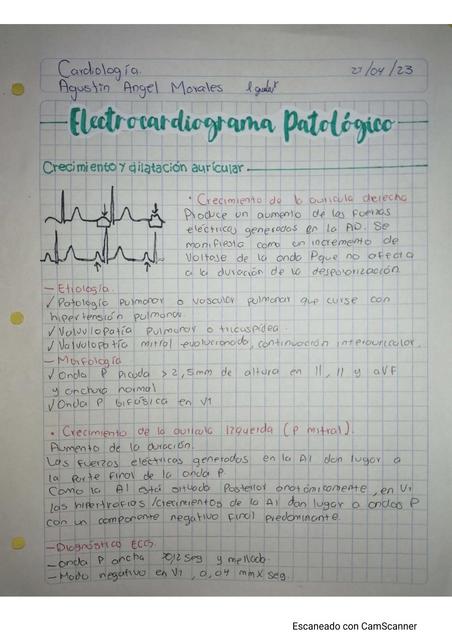 Cardiología.
27/04/23
Agustin Angel Morales
Electrocardiograma Patológico
Crecimiento y dilatación auricular
• Crecimiento de la auricula derecha
Produce un aumento de las fuerzas
eléctricas generadas en la AD. Se
manifiesta como un incremento de
Voltaje de la onda P que no afecta
a la duración de la despolarización.
— Etiología.
✓ Patología Pulmonar o vascular pulmonar que curse con
hipertensión pulmonar.
✓ Valvulopatía Pulmonar o tricuspídea.
✓ Valvulopatía mitral evolucionado, continuación interauricular.
— Morfología
✓ Onda P Picuda > 2,5mm de altura en II, II y aVF
y anchura normal
✓ Onda P Bifásica en V1
• Crecimiento de la auricula Izquierda (P mitral).
Aumento de la duración.
Las fuerzas eléctricas generadas en la AI dan lugar a
la parte final de la onda P.
Como la AI está situado Posterior anatómicamente, en V1
las hipertrofias /crecimientos de la AI dan lugar a ondas P
con un componente negativo final predominante.
— Diagnóstico ECG.
— onda P ancha 0,12 seg y mellado.
— Modo negativo en V1, 0,04 mm x seg.
Escaneado con CamScanner